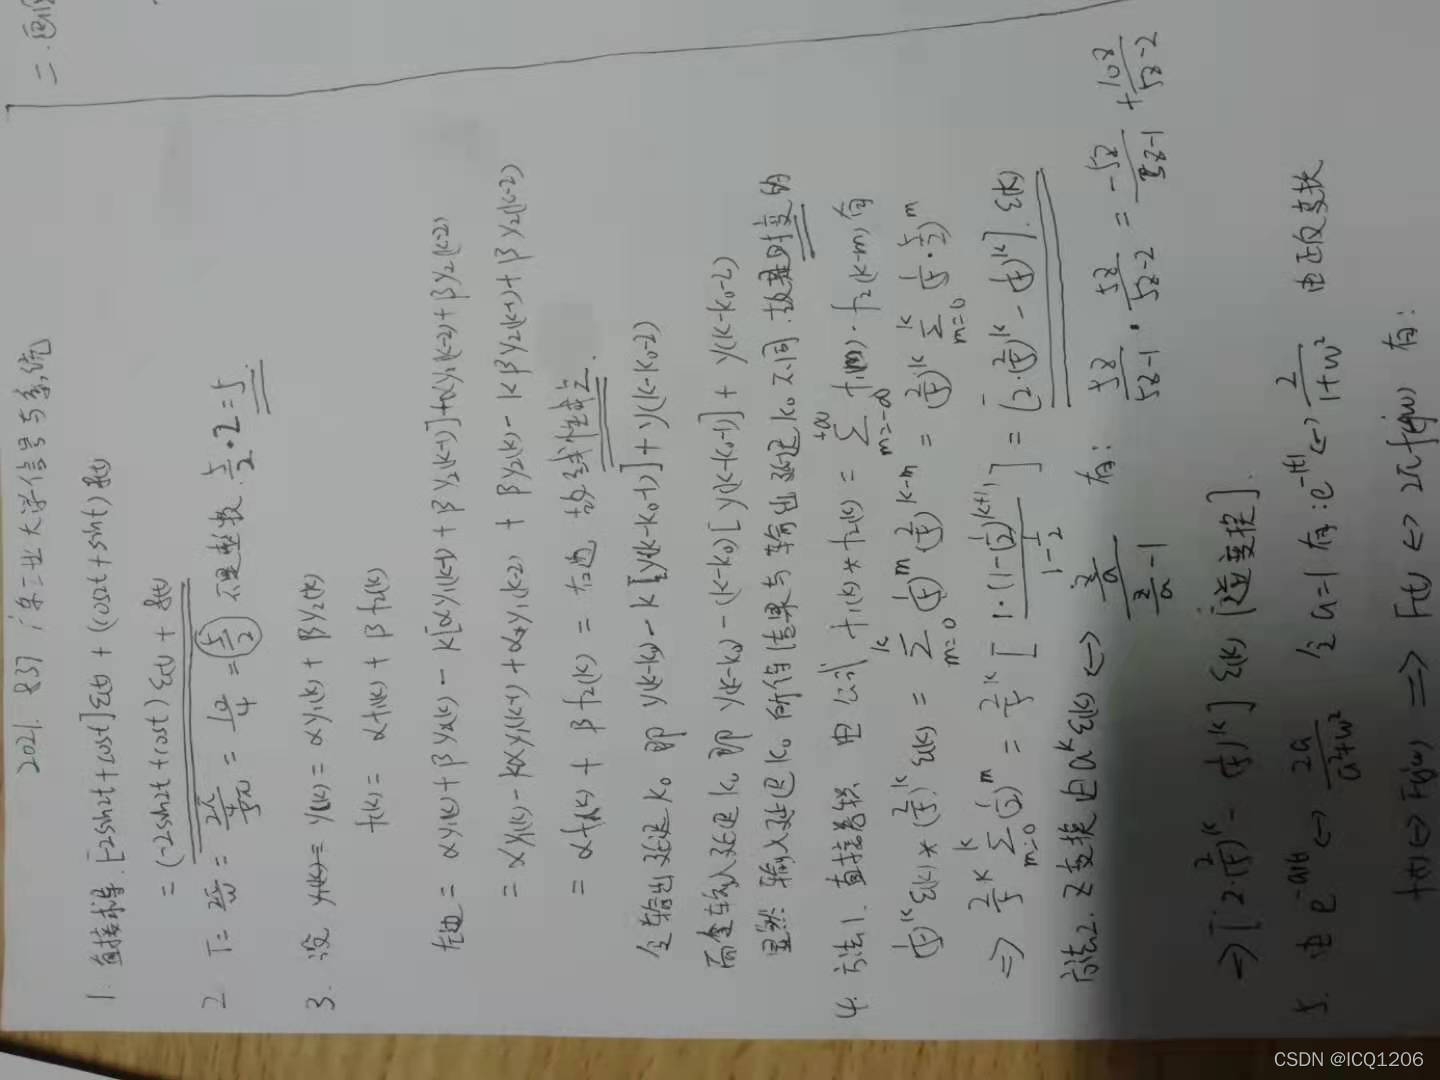 2021. 837 广东工业大学信号与系统
1. 直接求导. [-2sin2t+cost]ε(t) + (cos2t+sint)δ(t)
= (-2sin2t+cost)ε(t) + δ(t)
2 T = 2π/ω = 2π/(4/5π) = 10/4 = (5/2) 不是整数. 5/2·2=5
3. 设 y(k) = αy₁(k) + βy₂(k)
f(k) = αf₁(k) + βf₂(k)
左边 = αy₁(k)+βy₂(k) - k[αy₁(k-1)+βy₂(k-1)]+αy₁(k-2)+βy₂(k-2)
= αy₁(k) - kαy₁(k-1)+αy₁(k-2) + βy₂(k) - kβy₂(k-1)+βy₂(k-2)
= αf₁(k) + βf₂(k) = 右边 故线性
令输出延迟k₀ 即 y(k-k₀) - k[y(k-k₀-1)]+y(k-k₀-2)
而令输入延迟k₀ 即 y(k-k₀) - (k-k₀)[y(k-k₀-1)] + y(k-k₀-2)
显然 输入延迟k₀ 所得结果与输出延迟k₀不同. 故是时变的
4. 方法1. 直接卷积 由公式 f₁(k)*f₂(k) = Σ_{m=-∞}^{+∞} f₁(m)·f₂(k-m) 有
(1/5)^k ε(k) * (2/5)^k ε(k) = Σ_{m=0}^{k} (1/5)^m (2/5)^{k-m} = (2/5)^k Σ_{m=0}^{k} (1/5·5/2)^m
⇒ (2/5)^k Σ_{m=0}^{k} (1/2)^m = (2/5)^k [1·(1-(1/2)^{k+1})/(1-1/2)] = [2·(2/5)^k - (1/5)^k]·ε(k)
方法2. Z变换 由a^k ε(k) ↔ (z/a)/(z/a - 1) 有: 5z/(5z-1) · 5z/(5z-2) = -5z/(5z-1) + 10z/(5z-2)
⇒ [2·(2/5)^k - (1/5)^k] ε(k) [逆变换].
5. 由 e^{-a|t|} ↔ 2a/(a²+ω²) 令a=1 有: e^{-|t|} ↔ 2/(1+ω²) 由正反变换
f(t) ↔ F(jω) ⇒ F(t) ↔ 2πf(jω) 有:
二.画
CSDN @ICQ1206